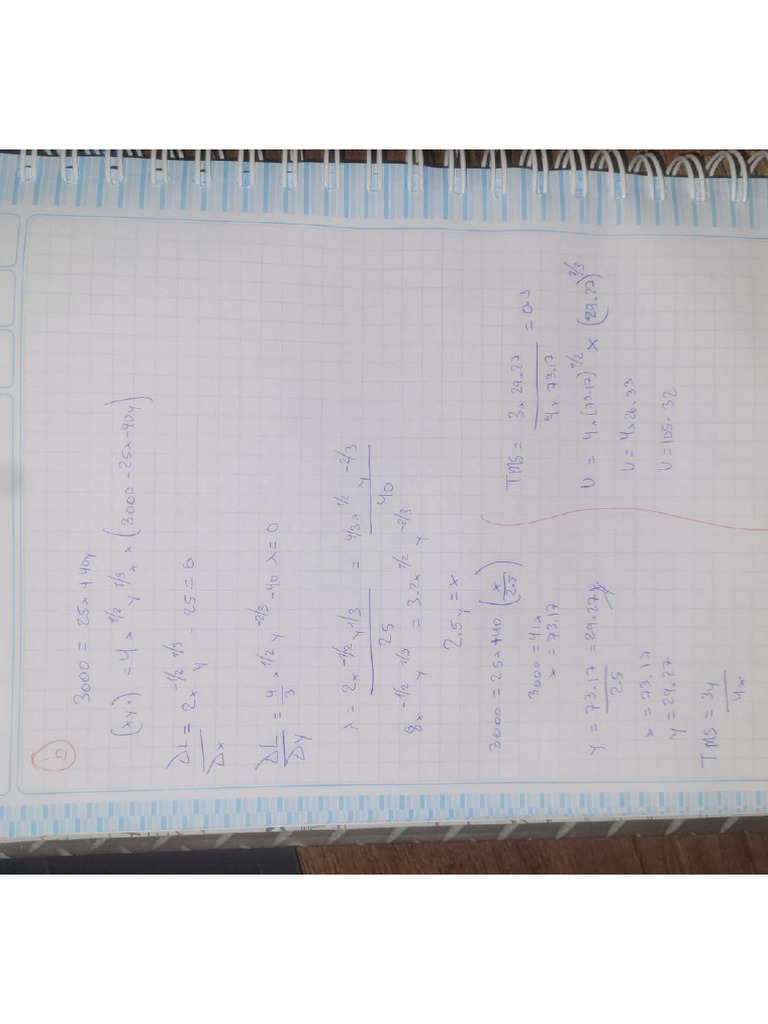 b
3000 = 25x + 40y
(x y x) = 4x^1/2 y^1/3 x x (3000 - 25x - 40y)
ΔL/Δx = 2x^-1/2 y^1/3 - 25 = 0
ΔL/Δy = 4/3 x^1/2 y^-2/3 - 40 λ = 0
λ = 2x^-1/2 y^1/3 / 25 = 4/3 x^1/2 y^-2/3 / 40
8x^-1/2 y^1/3 = 3.2x^1/2 y^-2/3
2.5y = x
3000 = 25x + 40 (x/2.5)
3000 = 41x
x = 73.17
y = 73.17/25 = 29.27
x = 73.17
y = 29.27
TMS = 3y/4x
TMS = 3x29.27 / 4x73.17 = 0.3
U = 4x(73.17)^1/2 x (29.27)^1/3
U = 4x26.33
U = 105.32